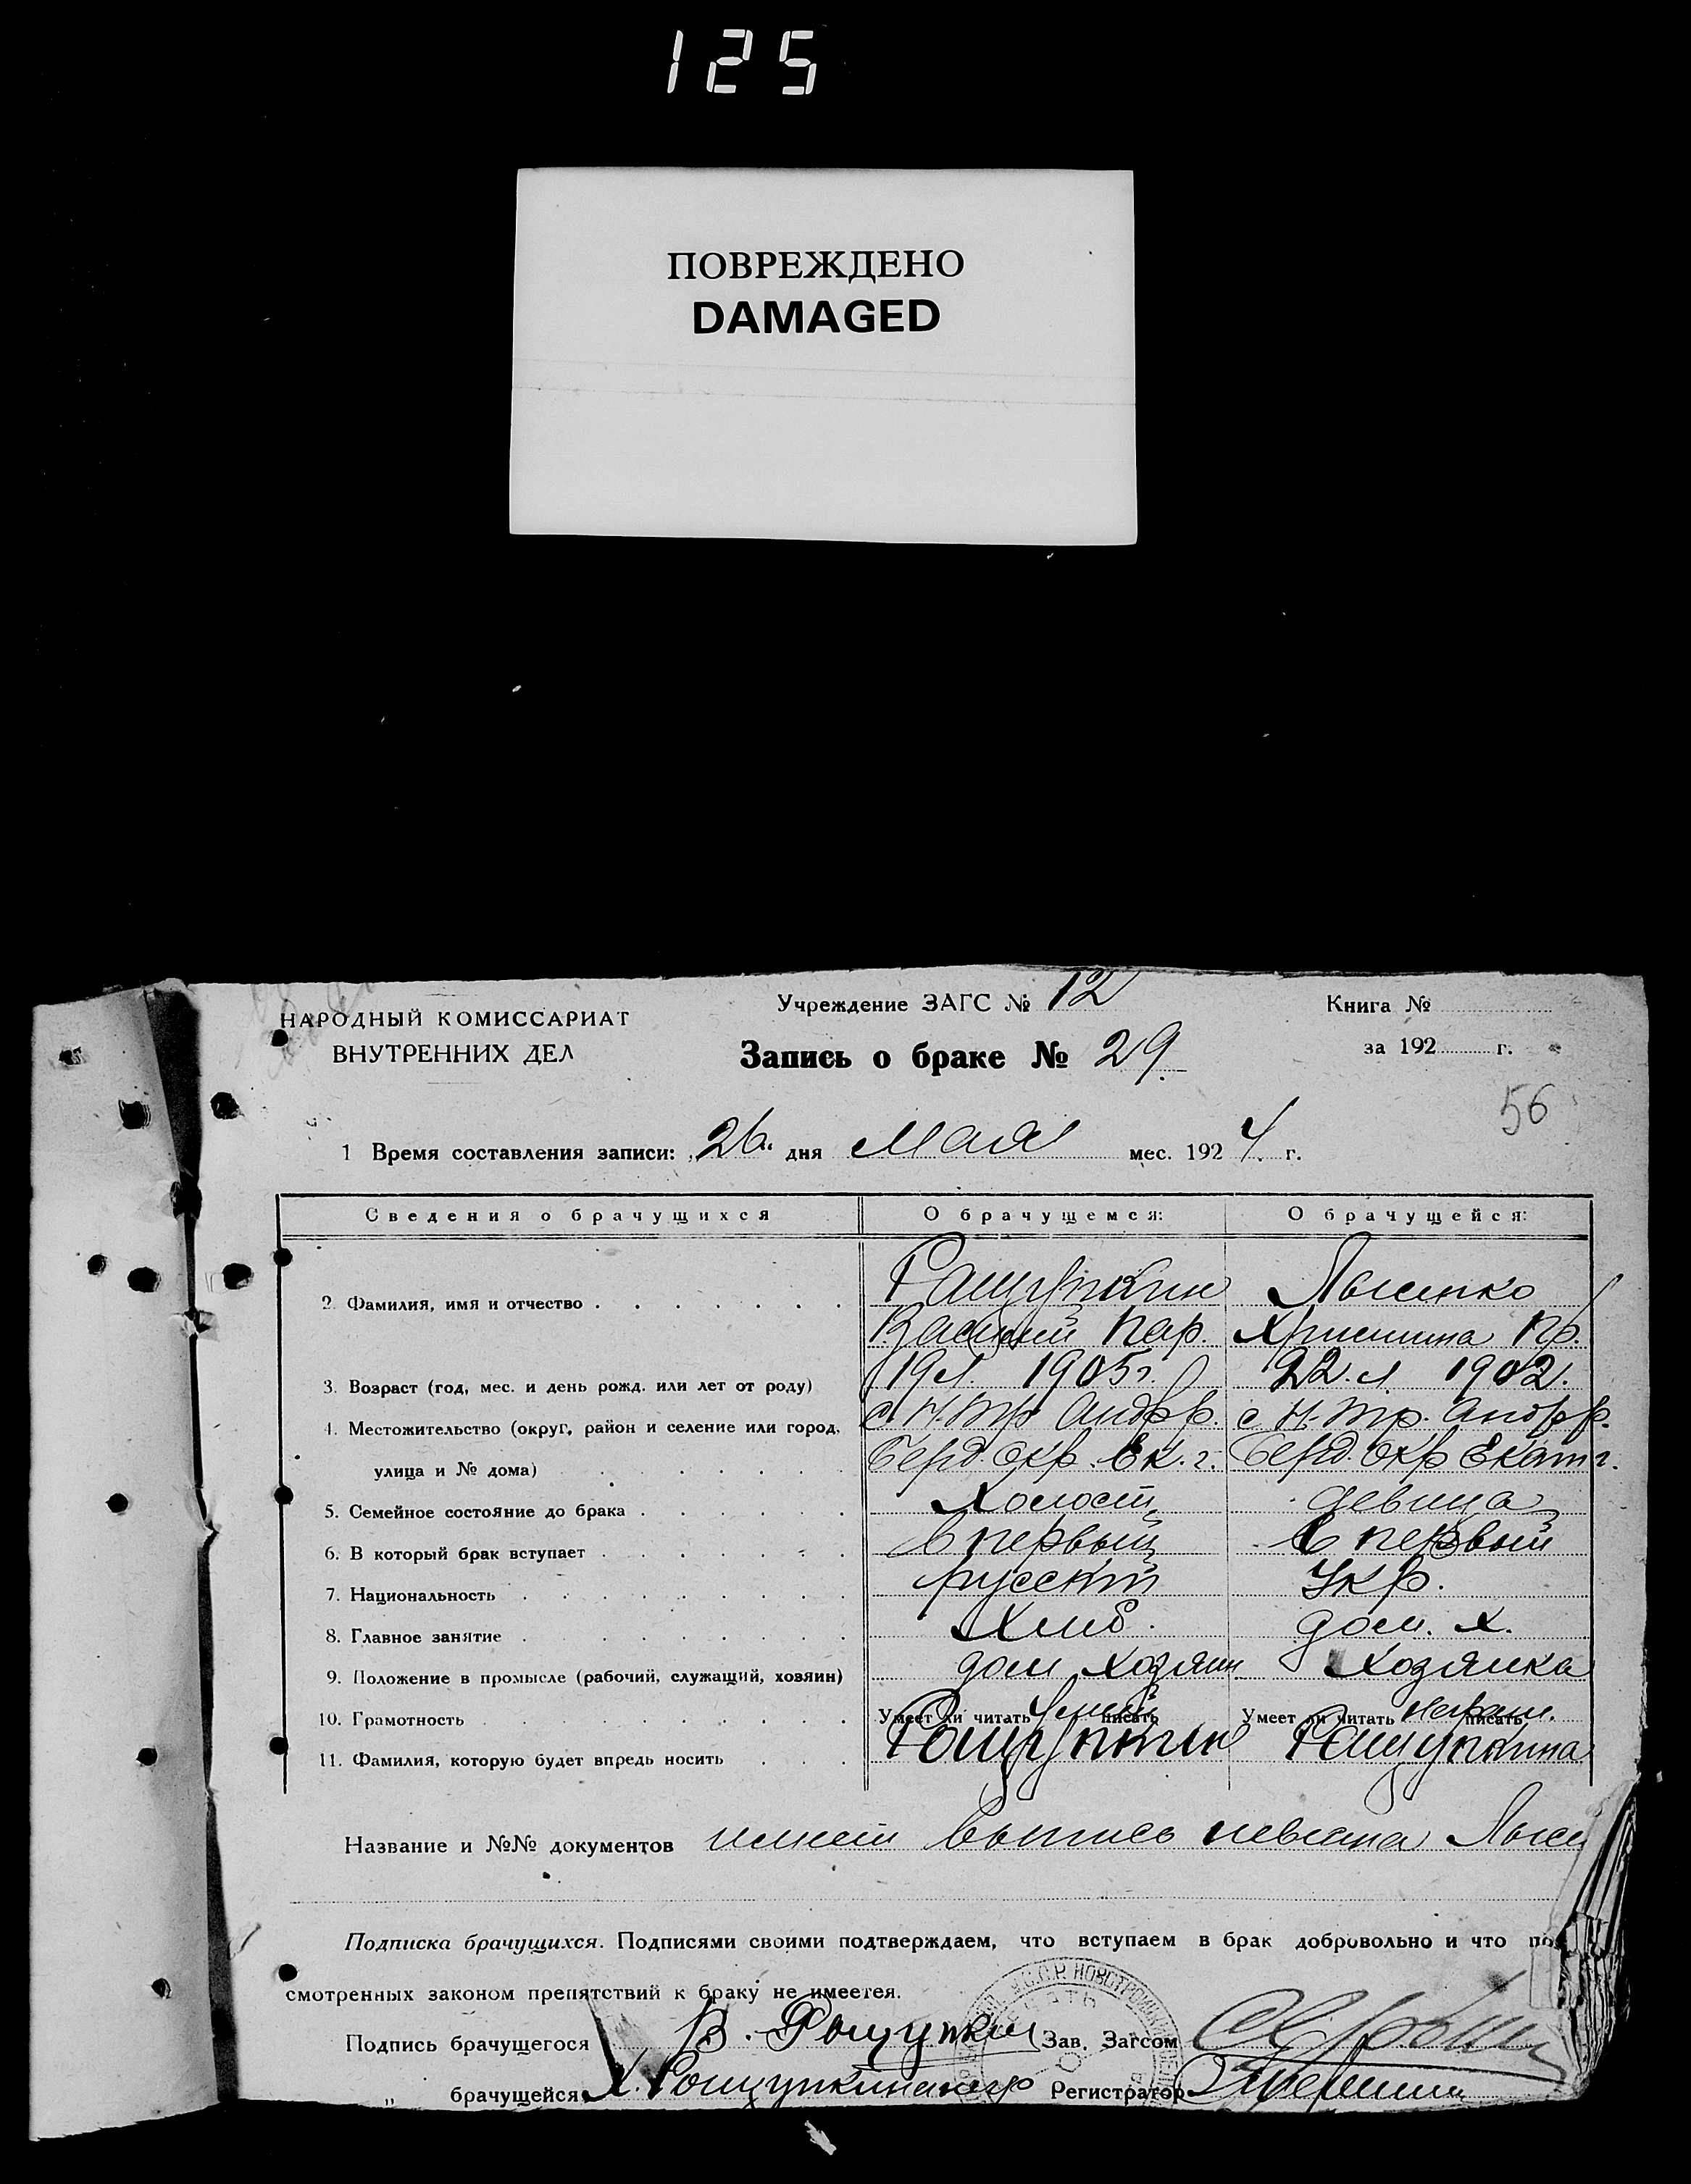 125
ПОВРЕЖДЕНО
DAMAGED
НАРОДНЫЙ КОМИССАРИАТ
ВНУТРЕННИХ ДЕЛ
Учреждение ЗАГС № 12
Книга №
Запись о браке № 29.
за 192 г.
56
1 Время составления записи: „26“ дня Мая мес. 1924 г.
Сведения о брачущихся О брачущемся: О брачущейся:
2. Фамилия, имя и отчество Ращупкин Лысенко
Василий Пар. Христина Пр.
3. Возраст (год, мес. и день рожд. или лет от роду) 19 л. 1905 г. 22. л. 1902.
4. Местожительство (округ, район и селение или город, с Н. Тр. Андр р. с Н. Тр. Андр р.
улица и № дома) Берд. окр. Ек. г. Берд. окр Екат г.
5. Семейное состояние до брака Холост девица
6. В который брак вступает В первый В первый
7. Национальность русский Укр.
8. Главное занятие Хлеб. дом. х.
9. Положение в промысле (рабочий, служащий, хозяин) дом хозяин Хозяйка
10. Грамотность Умеет ли читать писать Умеет ли читать писать Неграм.
11. Фамилия, которую будет впредь носить Рощупкин Рощупкина
Название и №№ документов выпись невеста Лысен
Подписка брачущихся. Подписями своими подтверждаем, что вступаем в брак добровольно и что
смотренных законом препятствий к браку не имеется.
Подпись брачущегося В. Рощупкин Зав. Загсом
„ брачущейся Х. Рощупкина Регистратор